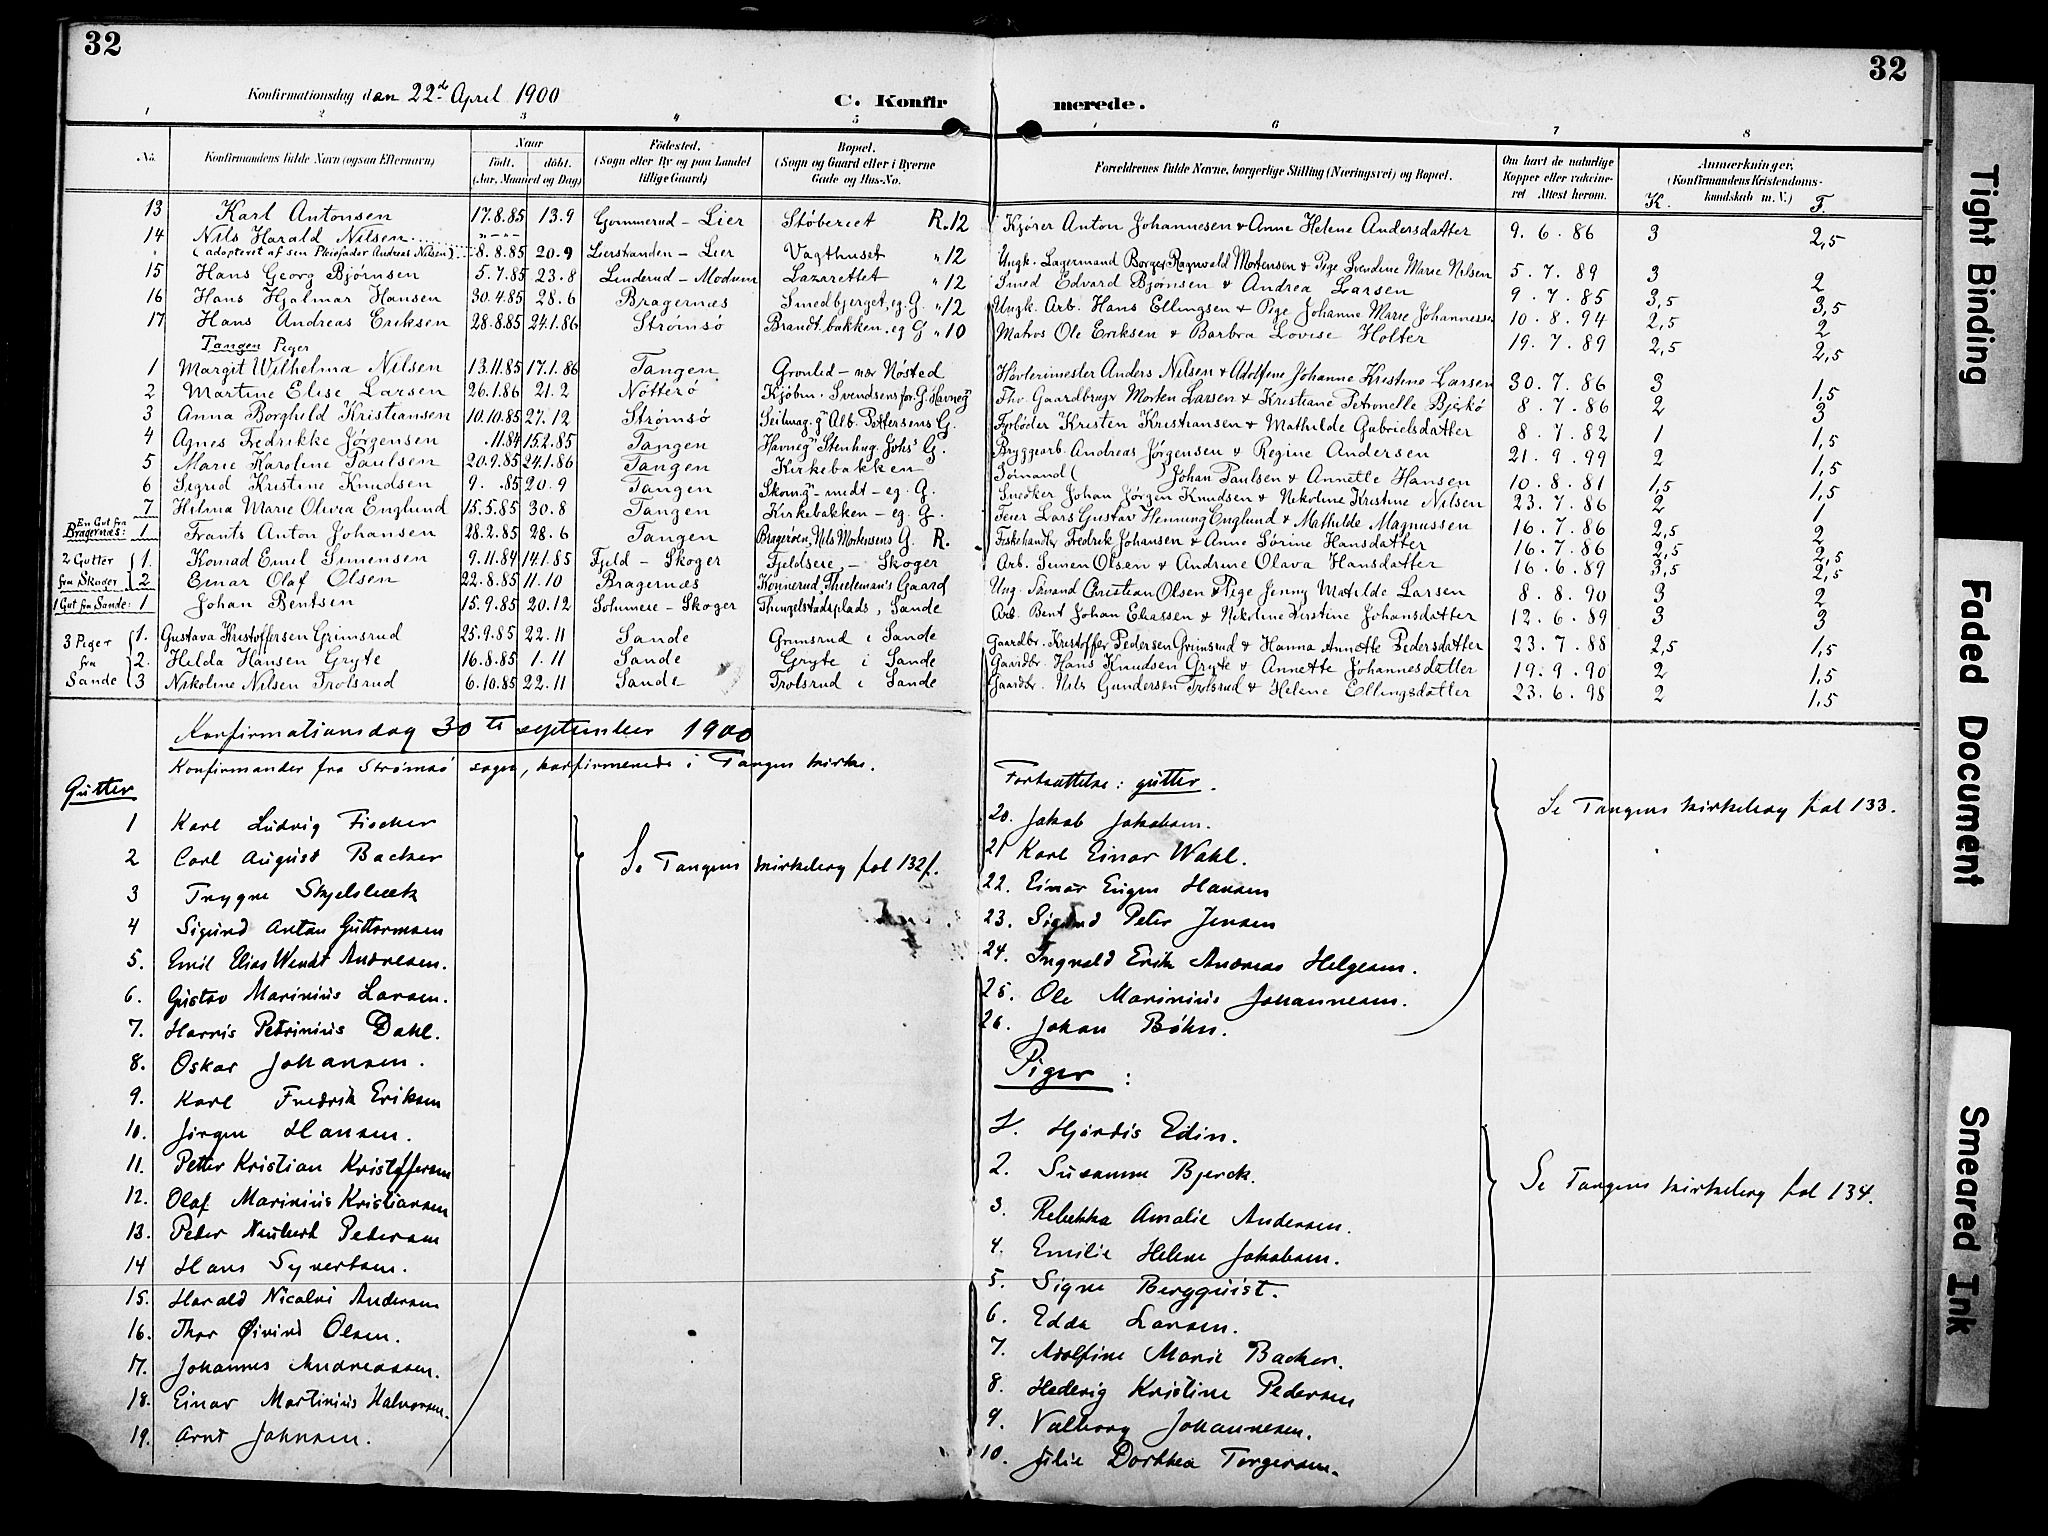 32
32
Konfirmationsdag den 22de April 1900
C. Konfirmerede.
1 2 3 4 5 6 7 8
No.
Konfirmandens fulde Navn (ogsaa Efternavn)
Naar
født. døbt.
(Aar, Maaned og Dag)
Fødested.
(Sogn eller By og paa Landet tillige Gaard)
Bopæl.
(Sogn og Gaard eller i Byerne Gade og Hus-No.
Forældrenes fulde Navne, borgerlige Stilling (Næringsvei) og Bopæl.
Om havt de naturlige Kopper eller vakcineret Attest herom.
Anmærkninger.
(Konfirmandens Kristendomskundskab m. V.)
K. F.
13 Karl Antonsen 17.8.85 13.9 Gommerud – Lier Støberiet R. 12 Kjører Anton Johannesen & Anne Helene Andersdatter 9. 6. 86 3 2,5
14 Nils Harald Nilsen
(adopteret af sin Pleiefader Andreas Nilsen) 8.8.85 20.9 Lierstranden – Lier Vagthuset " 12 Ungk. Lagermand Borger Ragnvald Mortensen & Pige Svendine Marie Nilsen 5. 7. 89 3 2
15 Hans Georg Bjørnsen 5.7.85 23.8 Linderud – Modum Lazarettet " 12 Smed Edvard Bjørnsen & Andrea Larsen 9. 7. 85 3,5 3,5
16 Hans Hjalmar Hansen 30.4.85 28.6 Bragernæs Smedbjerget, eg. G. " 12 Ungk. Arb. Hans Ellingsen & Pige Johanne Marie Johannessen 10. 8. 94 2,5 2
17 Hans Andreas Eriksen 28.8.85 24.1.86 Strømsø Brandt.bakken. eg G " 10 Matros Ole Eriksen & Barbra Lovise Holter 19. 7. 89 2,5 2,5
Tangen Piger
1 Margit Wilhelma Nilsen 13.11.85 17.1.86 Tangen Grønlid – nær Nøsted Høvlerimester Anders Nilsen & Adolfine Johanne Kristine Larsen 30. 7. 86 3 1,5
2 Martine Elise Larsen 26.1.86 21.2 Nötterö Kjøbm. Svendsens for. G. Havneg Fhv. Gaardbruger Morten Larsen & Kristiane Petronelle Bjerkö 8. 7. 86 2 3
3 Anna Borghild Kristiansen 10.10.85 27.12 Strømsö Seilmag. g Alb. Pettersens G. Fyrbøder Kristen Kristiansen & Mathilde Gabrielsdatter 8. 7. 82 1 1,5
4 Agnes Fredrikke Jörgensen .11.84 15.2.85 Tangen Havneg Stenhug. Johs G. Bryggearb. Andreas Jörgensen & Regine Andersen 21. 9. 99 2 1,5
5 Marie Karoline Paulsen 20.9.85 24.1.86 Tangen Kirkebakken Sømand ( ) Johan Paulsen & Annette Hansen 10. 8. 81 1,5 1,5
6 Sigrid Kristine Knudsen 9. .85 20.9 Tangen Skomg – midt – eg. G. Snedker Johan Jörgen Knudsen & Nikoline Kristine Nilsen 23. 7. 86 2 1
7 Hilma Marie Olivia Englund 15.5.85 30.8 Tangen Kirkebakken – eg. G. Feier Lars Gustav Henning Englund & Mathilde Magnussen 16. 7. 86 2,5 2
En Gut fra Bragernæs: 1 Frants Anton Johansen 28.2.85 28.6 Tangen Bragerøen, Nils Mortensens G. R. Fiskehandler Fredrik Johansen & Anne Sørine Hansdatter 16. 7. 86 2,5 2,5
2 Gutter fra Skoger
1. Konrad Emil Simensen 9.11.84 14.1.85 Fjeld – Skoger Fjeldseie, – Skoger Arb. Simen Olsen & Andrine Olava Hansdatter 16. 6. 89 3,5 2,5
2 Einar Olaf Olsen 22.8.85 11.10 Bragernæs Konnerud, Theeleman's Gaard Ung. Sømand Christian Olsen & Pige Jenny Matilde Larsen 8. 8. 90 3 2
1 Gut fra Sande: 1 Johan Bentsen 15.9.85 20.12 Solumeie – Skoger Thingelstadsplads, Sande Arb. Bent Johan Eliassen & Nikoline Kirstine Johansdatter 12. 6. 89 3 3
3 Piger fra Sande
1. Gustava Kristoffersen Grimsrud 25.9.85 22.11 Sande Grimsrud i Sande Gaardbr. Kristoffer Pedersen Grimsrud & Hanna Annette Pedersdatter 23. 7. 88 2,5 1,5
2. Hilda Hansen Gryte 16.8.85 1.11 Sande Gryte i Sande Gaardbr. Hans Knudsen Gryte & Annette Johannesdatter 19. 9. 90 2 1,5
3 Nikoline Nilsen Trolsrud 6.10.85 22.11 Sande Trolsrud i Sande Gaardbr. Nils Gundersen Trolsrud & Helene Ellingsdatter 23. 6. 98 2 1.5
Konfirmationsdag 30te september 1900
Konfirmander fra Strømsø sogn, konfirmerede i Tangen kirke.
Gutter
1 Karl Ludvig Fischer
2 Carl August Backer
3 Trygve Skjelsbæk
4 Sigurd Anton Guttormsen
5. Emil Elias Wendt Andresen.
6. Gustav Marinius Larsen.
7. Harris Petrinius Dahl.
8. Oskar Johansen.
9. Karl Fredrik Eriksen
10. Jørgen Hansen.
11. Petter Kristian Kristoffersen
12. Olaf Marinius Kristiansen
13. Peter Neubert Pedersen
14 Hans Syvertsen.
15. Harald Nicolai Andersen
16. Thor Øivind Olsen.
17. Johannes Andreassen.
18. Einar Martinius Halvorsen.
19. Arnt Johnsen.
Se Tangens kirkebog fol 132f.
Fortsættelse: gutter.
20. Jakob Jakobsen.
21 Karl Einar Wahl.
22. Einar Eugen Hansen
23. Sigurd Peter Jensen
24. Ingvald Erik Andreas Helgesen.
25. Ole Marinius Johannesen.
26. Johan Bøhn.
Se Tangens kirkebog fol 133.
Piger:
1. Hjørdis Edin.
2. Susanne Bjerck.
3. Rebekka Amalie Andersen.
4. Emilie Helene Jakobsen.
5. Signe Bergquist.
6. Edda Larsen.
7. Adolfine Marie Backer.
8. Hedevig Kristine Pedersen
9. Valborg Johannesen.
10. Julie Dorthea Torgersen.
Se Tangens kirkebog fol 134.
Tight Binding
Faded Document
Smeared Ink